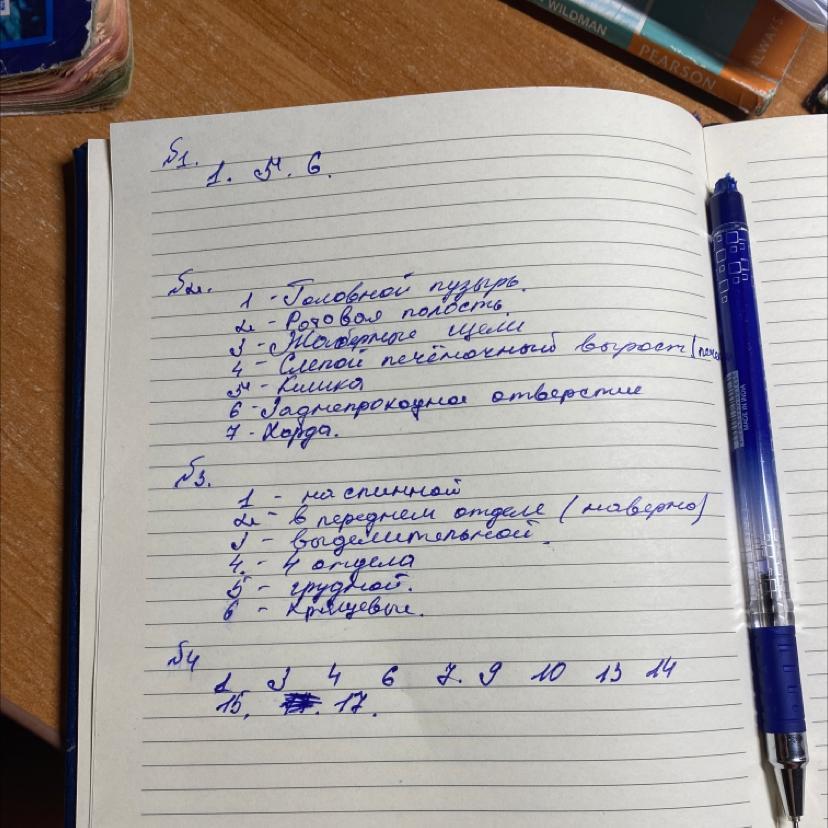 WILDMAN
PEARSON
ALWAYS
Б1.
1. 5. 6.
Б2.
1 - Головной пузырь.
2 - Ротовая полость.
3 - Жаберные щели
4 - Слепой печёночный вырост (
5 - Кишка
6 - Заднепроходное отверстие
7 - Хорда.
Б3.
1 - на спинной
2 - в переднем отделе (наверно)
3 - выделительной.
4 - 4 отдела
5 - грудной.
6 - Хрящевые.
Б4
1. 3 4 6 7. 9 10 13 14
15. 17.
MADE IN INDIA